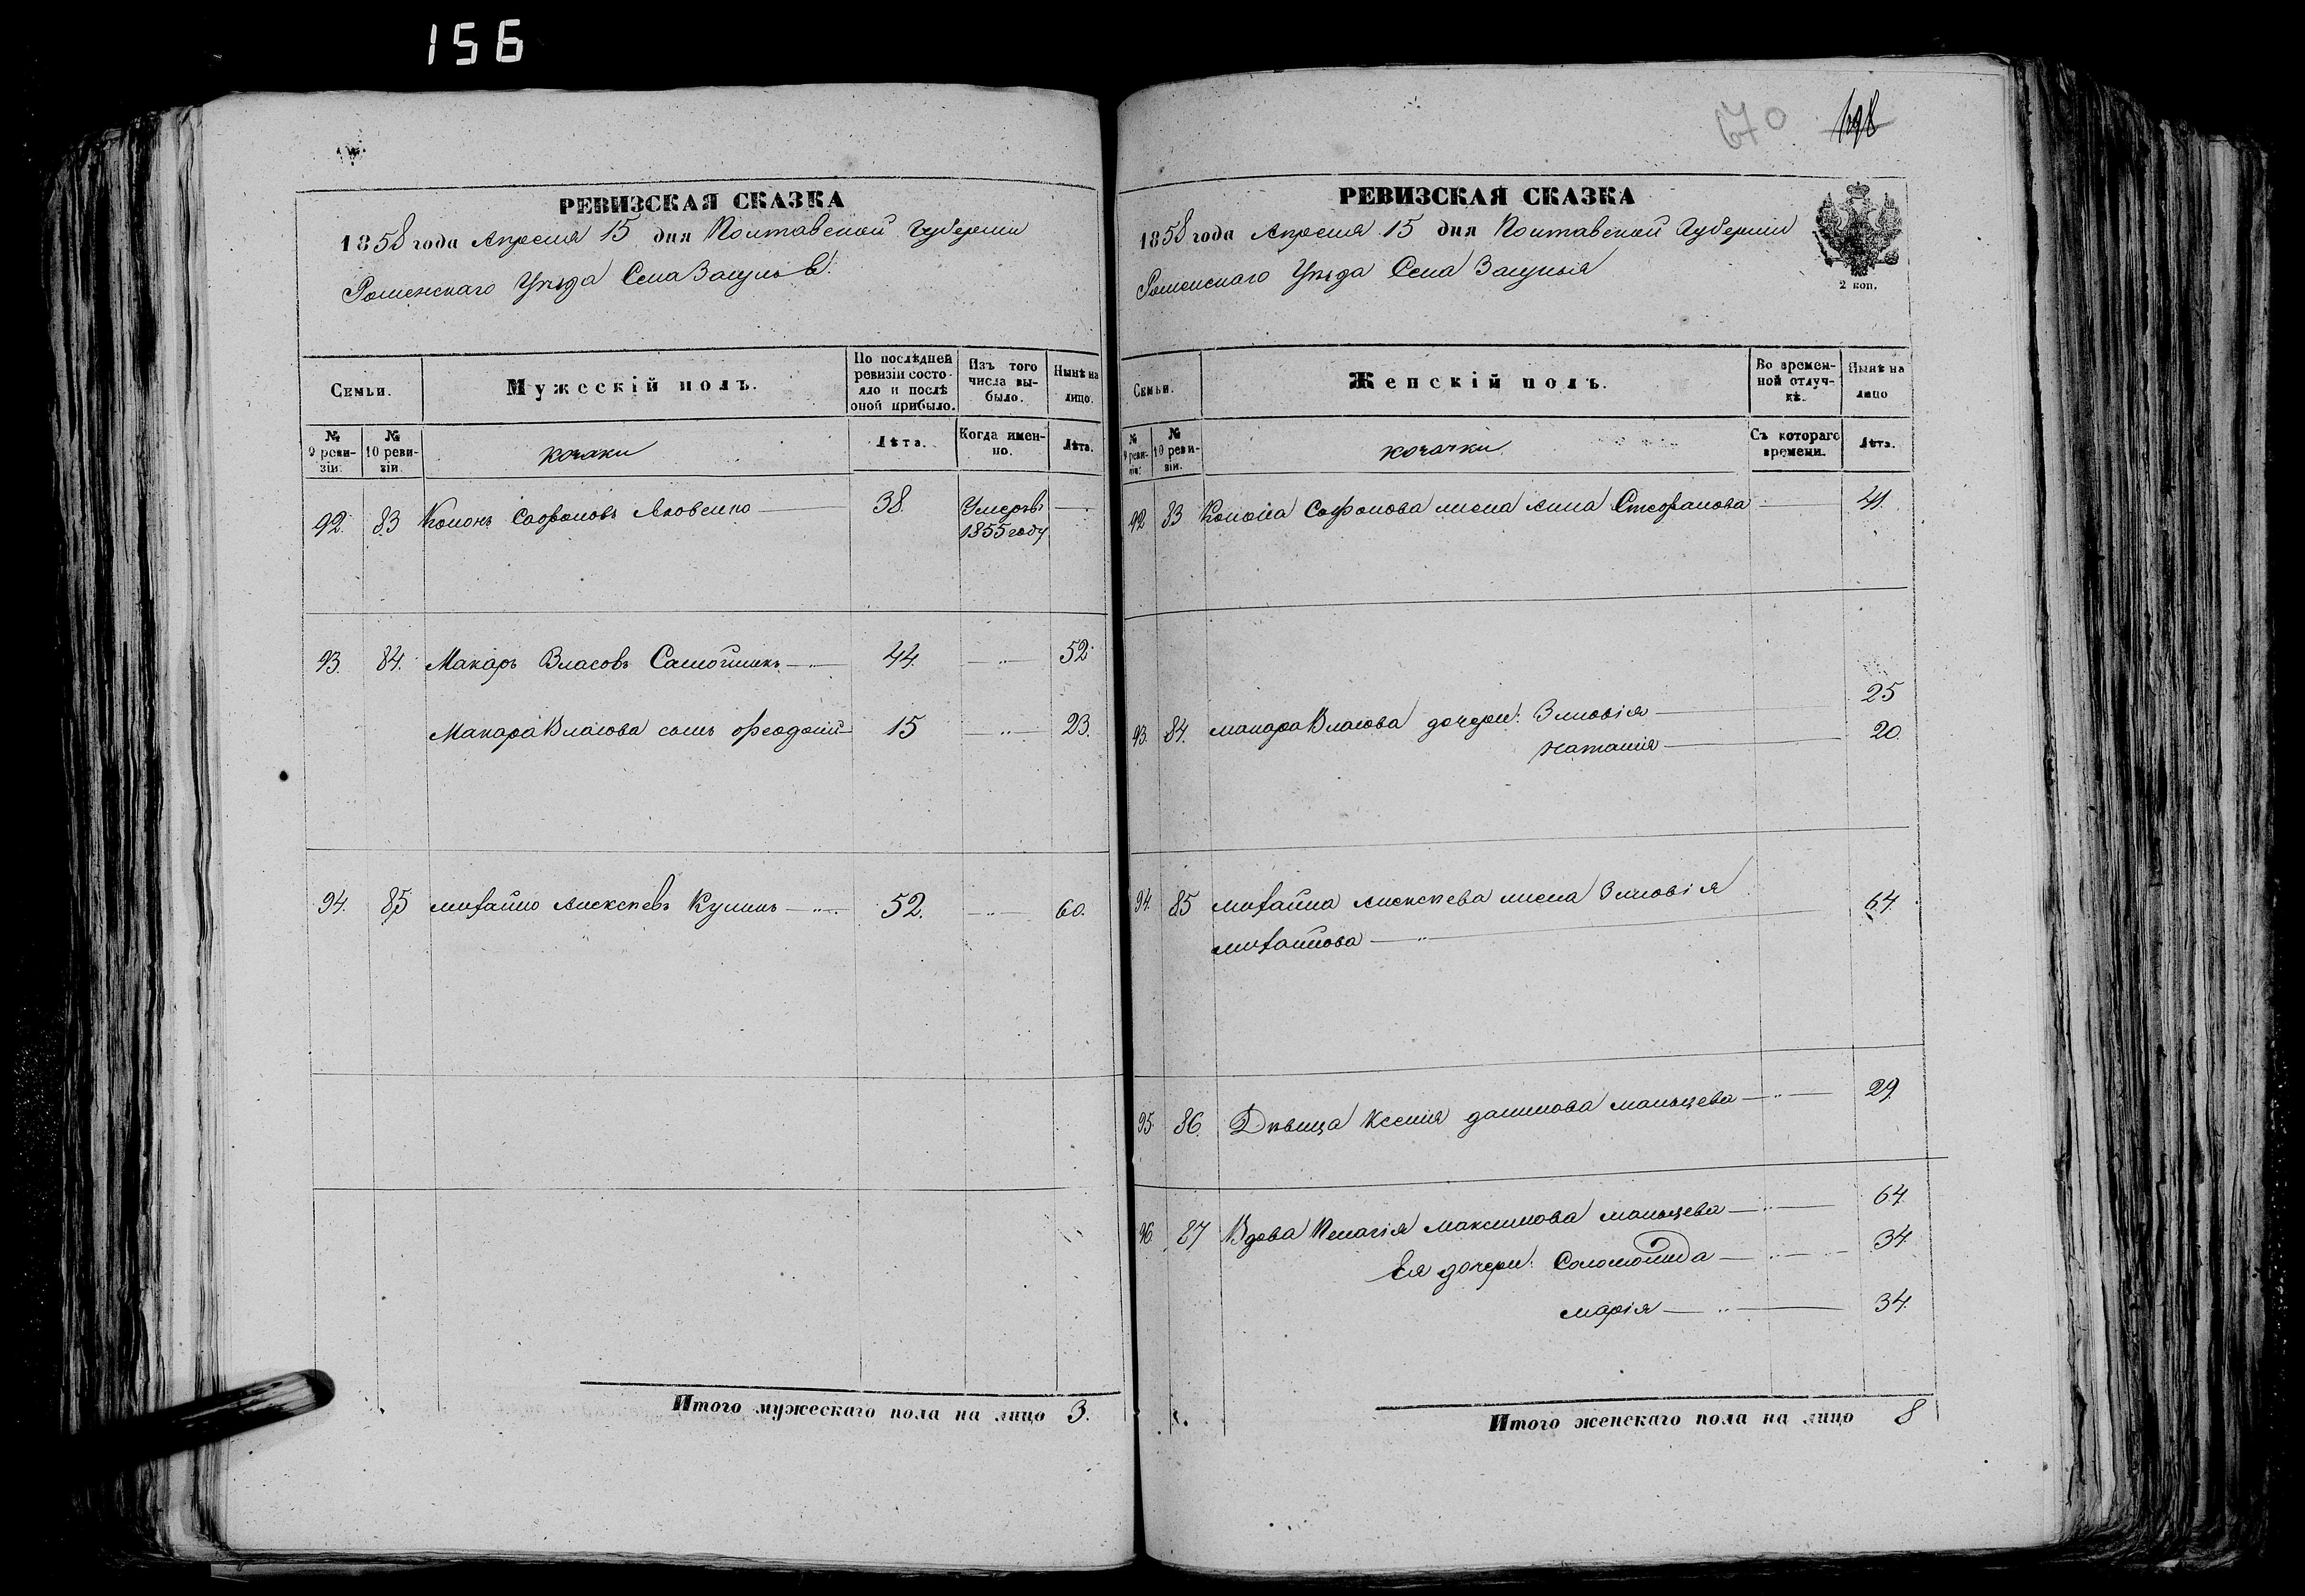 156
РЕВИЗСКАЯ СКАЗКА
1858 года Апреля 15 дня Полтавской Губернии
Роменскаго Уѣзда Села Засулья
Семьи.
Мужескій полъ.
По послѣдней ревизіи состояло и послѣ оной прибыло.
Изъ того числа выбыло.
Нынѣ на лицо.
№ 9 ревизіи.
№ 10 ревизіи.
козаки
Лѣта.
Когда именно.
Лѣта.
92. 83 Кононъ Софоновъ Яковенко 38. Умеръ въ 1855 году
93. 84. Макаръ Власовъ Самойликъ 44. 52
Макара Власова сынъ Феодосий 15 23.
94. 85 Михайло Алексѣевъ Куликъ 52. 60.
Итого мужескаго пола на лицо 3.
670 198
РЕВИЗСКАЯ СКАЗКА
1858 года Апреля 15 дня Полтавской Губернии
Роменскаго Уѣзда Села Засулья
2 коп.
Семьи.
Женскій полъ.
Во временной отлучкѣ.
Нынѣ на лицо
№ 9 ревизіи.
№ 10 ревизіи.
козачки
Съ котораго времени.
Лѣта.
92 83 Конона Софонова жена Анна Стефанова 41.
93. 84. Макара Власова дочери: Зиновія 25
Наталия 20.
94. 85 Михайла Алексѣева жена Зиновія
Михайлова 64.
95. 86. Дѣвица Ксения Данилова Мальцева 29.
96. 87 Вдова Пелагія Максимова Мальцева 64
Ея дочери: Соломонида 34.
Марія 34.
Итого женскаго пола на лицо 8